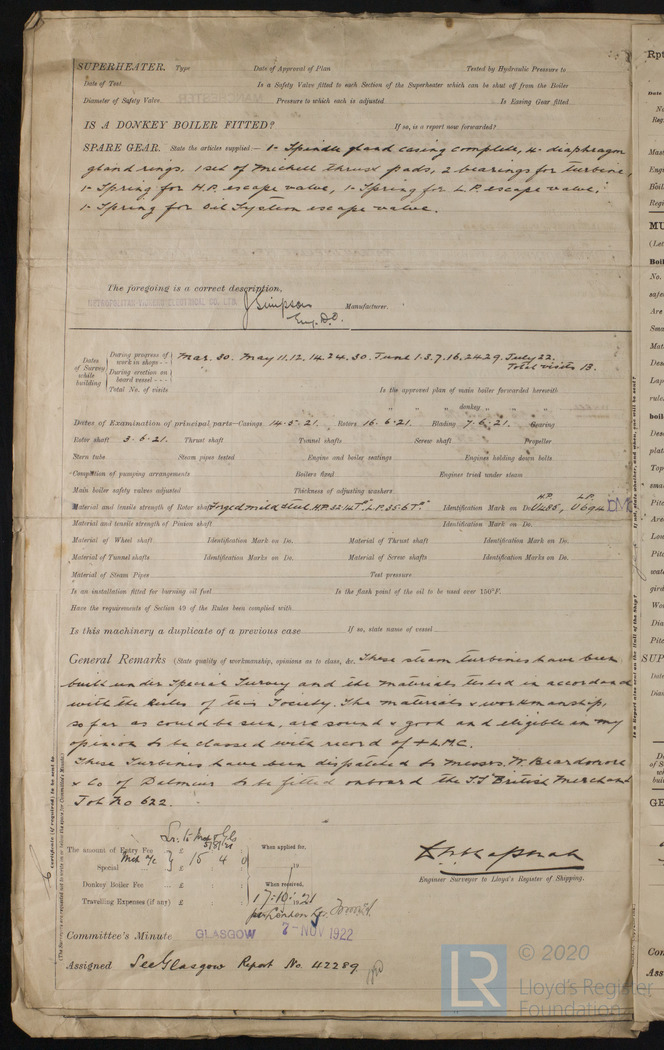 SUPERHEATER. Type Date of Approval of Plan Tested by Hydraulic Pressure to
Date of Test Is a Safety Valve fitted to each Section of the Superheater which can be shut off from the Boiler
Diameter of Safety Valve Pressure to which each is adjusted Is Easing Gear fitted
IS A DONKEY BOILER FITTED? If so, is a report now forwarded?
SPARE GEAR. State the articles supplied:— 1- Spindle gland casing complete, 4- diaphragm
gland rings, 1 set of Michell thrust pads, 2 bearings for turbine,
1- Spring for H.P. escape valve, 1- Spring for L.P. escape valve,
1- Spring for Oil System escape valve.
The foregoing is a correct description,
METROPOLITAN-VICKERS ELECTRICAL CO., LTD.
J Simpson Manufacturer.
Dates of Survey while building
During progress of work in shops - - Mar. 30. May 11. 12. 14. 24. 30. June 1. 3. 7. 16. 24. 29. July 22.
During erection on board vessel - - - Total visits 13.
Total No. of visits Is the approved plan of main boiler forwarded herewith
" " " donkey " " "
Dates of Examination of principal parts—Casings 14.5.21. Rotors 16.6.21. Blading 7.6.21. Gearing
Rotor shaft 3.6.21. Thrust shaft Tunnel shafts Screw shaft Propeller
Stern tube Steam pipes tested Engine and boiler seatings Engines holding down bolts
Completion of pumping arrangements Boilers fixed Engines tried under steam
Main boiler safety valves adjusted Thickness of adjusting washers
Material and tensile strength of Rotor shaft Forged mild steel H.P. 32.14 T□" L.P. 35.6 T□" Identification Mark on Do. H.P. U485, L.P. U694
Material and tensile strength of Pinion shaft Identification Mark on Do.
Material of Wheel shaft Identification Mark on Do. Material of Thrust shaft Identification Mark on Do.
Material of Tunnel shafts Identification Marks on Do. Material of Screw shafts Identification Marks on Do.
Material of Steam Pipes Test pressure
Is an installation fitted for burning oil fuel Is the flash point of the oil to be used over 150°F.
Have the requirements of Section 49 of the Rules been complied with
Is this machinery a duplicate of a previous case If so, state name of vessel
General Remarks (State quality of workmanship, opinions as to class, &c. These steam turbines have been
built under Special Survey and the materials tested in accordance
with the Rules of this Society. The materials & workmanship,
so far as could be seen, are sound & good and eligible in my
opinion to be classed with record of + L.M.C.
These Turbines have been dispatched to Messrs. W. Beardmore
& Co of Dalmuir to be fitted onboard the S.S. "British Merchant"
Job No 622.
The amount of Entry Fee £ : : When applied for,
Special £ 15 : 4 : 0 19
Donkey Boiler Fee £ : : When received,
Travelling Expenses (if any) £ : : 17.10.21
Engineer Surveyor to Lloyd's Register of Shipping.
Committee's Minute GLASGOW 7- NOV 1922
Assigned See Glasgow Report No. 42289
© 2020
LR Lloyd's Register
Foundation